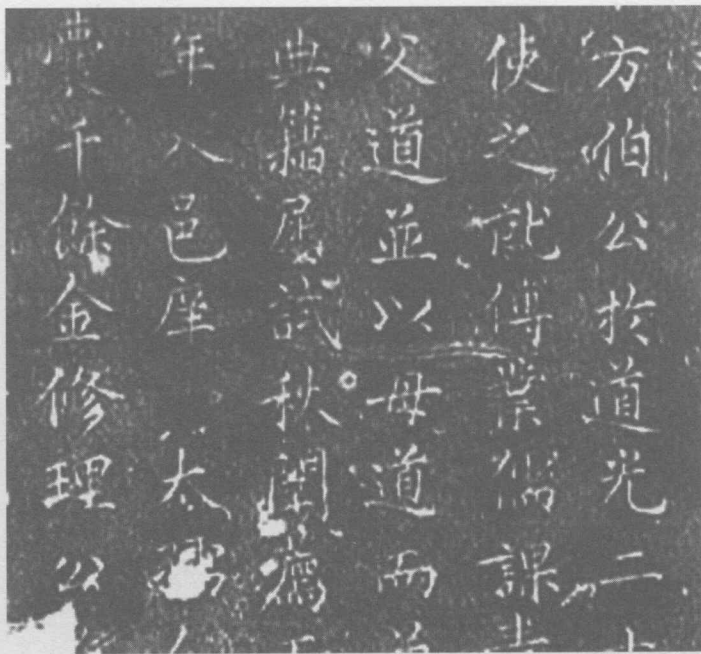 方伯公於道光二十
使之就傅業儒課
父道並以母道而
典籍屢試秋闈薦
年入邑座 太
囊千餘金修理公